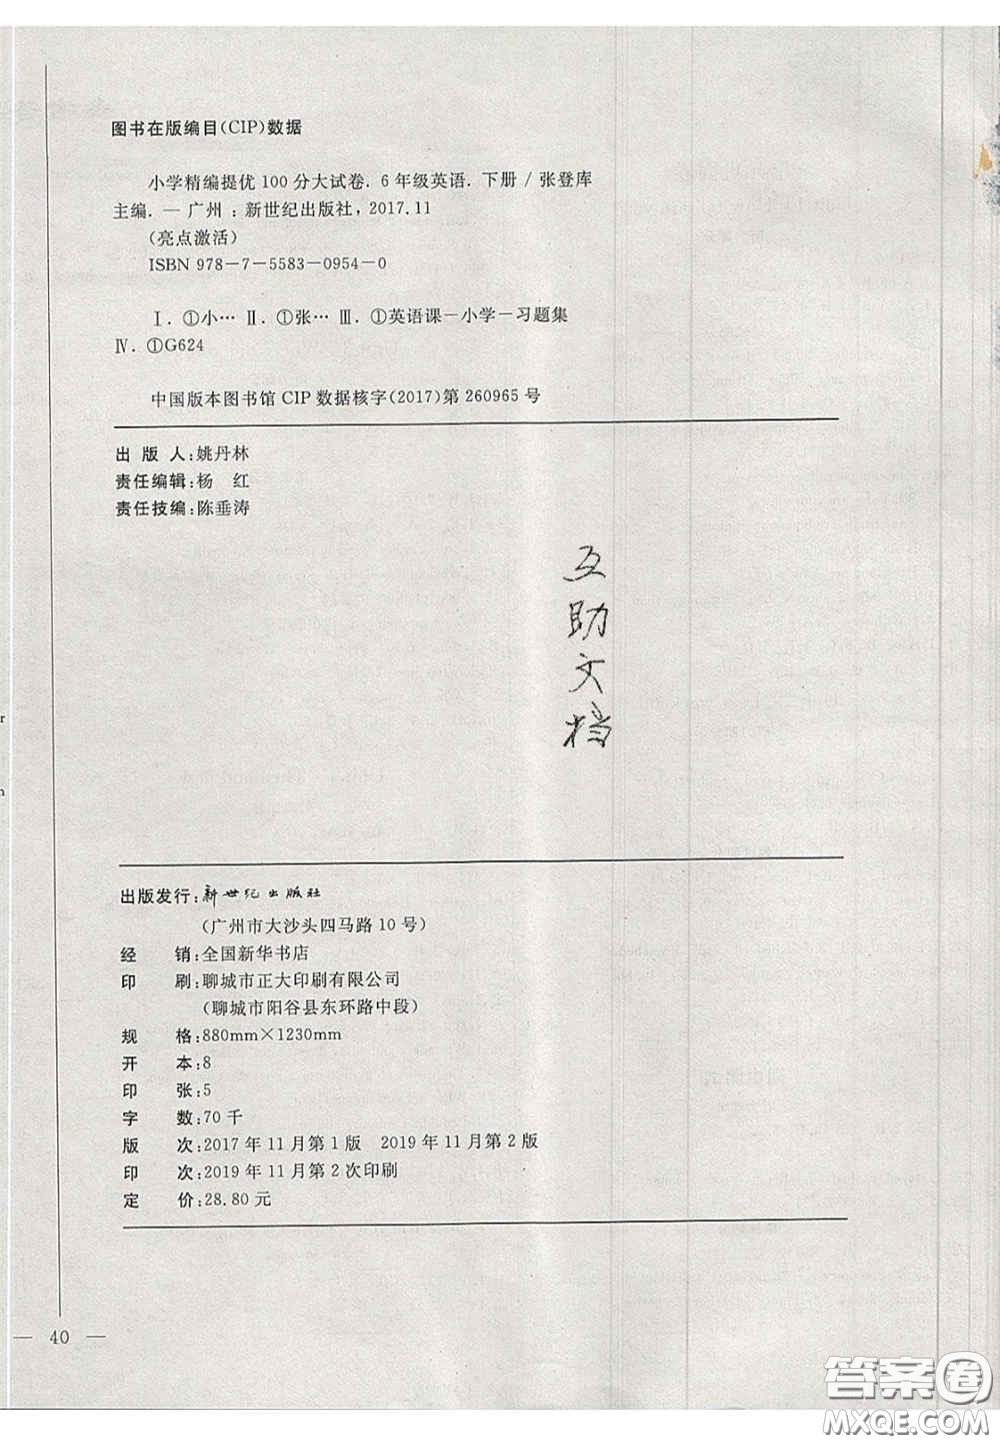 图书在版编目(CIP)数据
小学精编提优100分大试卷. 6年级英语. 下册 / 张登库
主编. — 广州 : 新世纪出版社, 2017.11
(亮点激活)
ISBN 978-7-5583-0954-0
Ⅰ. ①小… Ⅱ. ①张… Ⅲ. ①英语课-小学-习题集
Ⅳ. ①G624
中国版本图书馆CIP数据核字(2017)第260965号
出 版 人:姚丹林
责任编辑:杨 红
责任技编:陈垂涛
互
助
文
档
出版发行:新世纪出版社
(广州市大沙头四马路10号)
经 销:全国新华书店
印 刷:聊城市正大印刷有限公司
(聊城市阳谷县东环路中段)
规 格:880mm×1230mm
开 本:8
印 张:5
字 数:70千
版 次:2017年11月第1版 2019年11月第2版
印 次:2019年11月第2次印刷
定 价:28.80元
— 40 —
答案圈
MXQE.COM